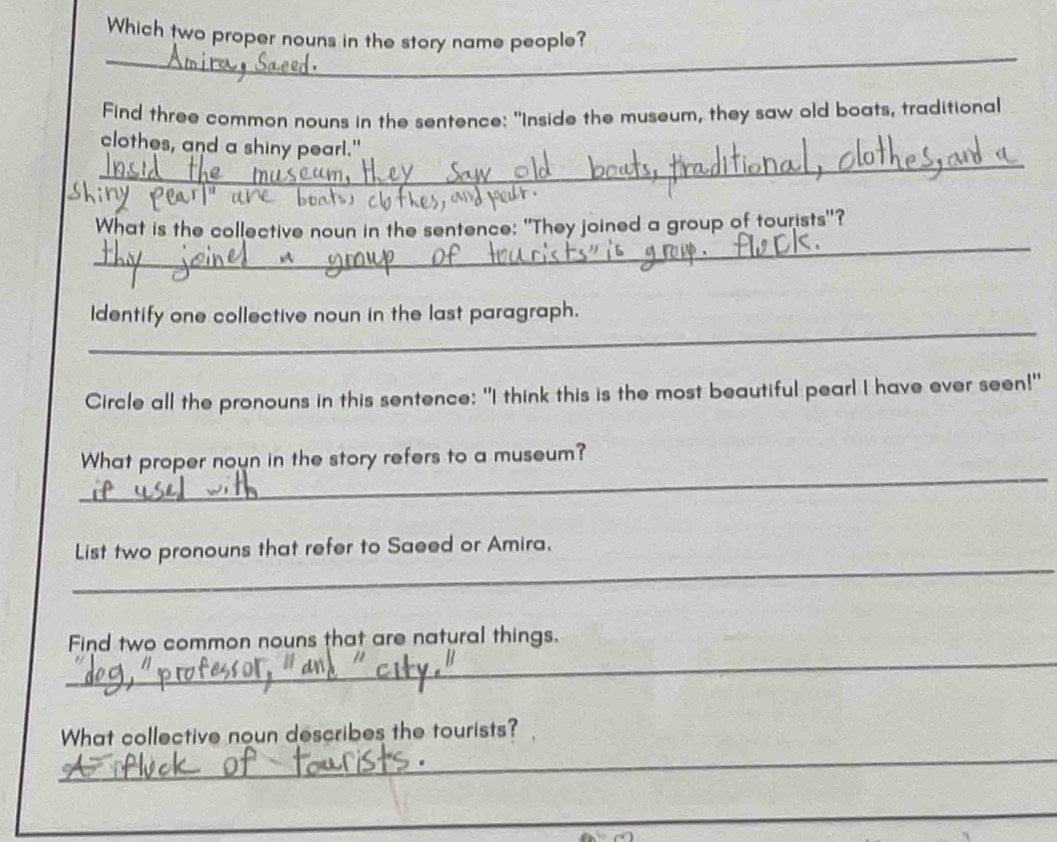 Which two proper nouns in the story name people?
Amira, Saeed.
Find three common nouns in the sentence: "Inside the museum, they saw old boats, traditional
clothes, and a shiny pearl."
Insid the museum, they saw old boats, traditional, clothes, and a
shiny pearl" are boats, clothes, and pealr.
What is the collective noun in the sentence: "They joined a group of tourists"?
thy joined a group of tourists" is group. flock.
Identify one collective noun in the last paragraph.
Circle all the pronouns in this sentence: "I think this is the most beautiful pearl I have ever seen!"
What proper noun in the story refers to a museum?
if used with
List two pronouns that refer to Saeed or Amira.
Find two common nouns that are natural things.
"dog," "professor," and "city."
What collective noun describes the tourists?
A flock of tourists.